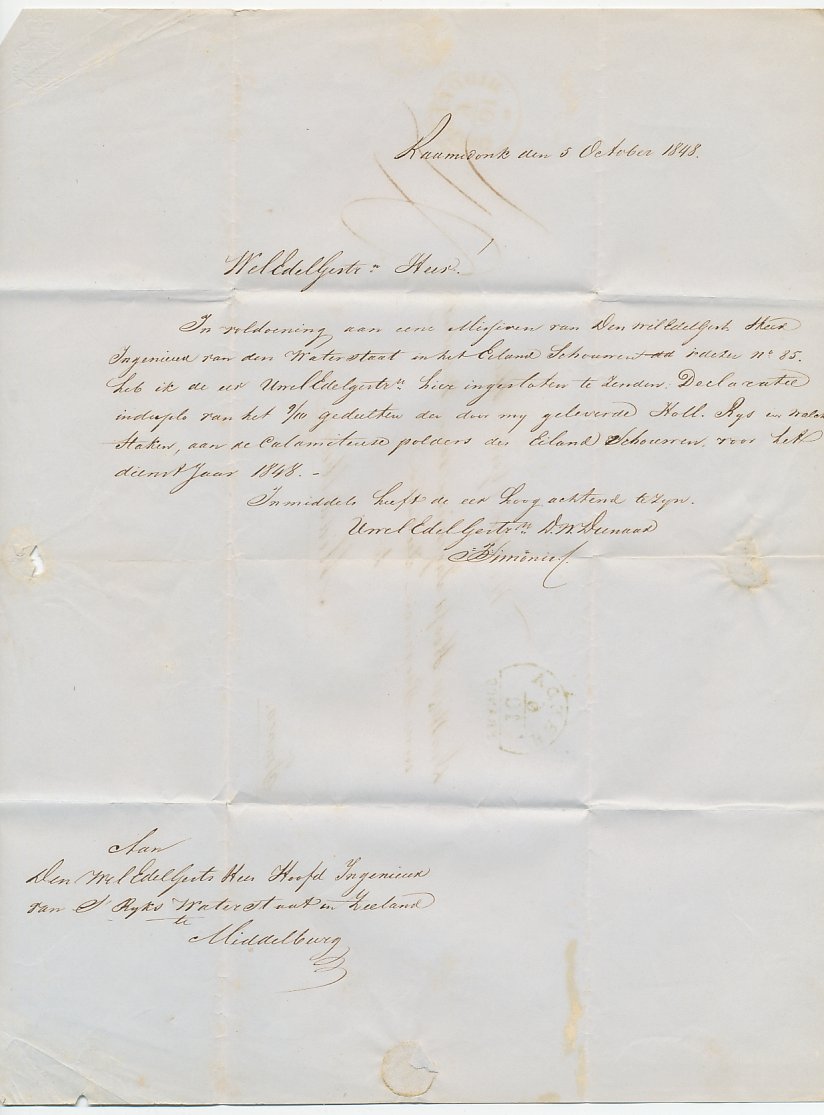 Raamsdonk den 5 October 1848.
WelEdelGestr.e Heer!
In voldoening aan eene Missiven van Den WelEdelGestr. Heer
Ingenieur van den Waterstaat in het Eiland Schouwen N.o 85.
heb ik de eer UwelEdelgestr.n hier ingesloten te zenden: Declaratie
induplo van het 9/10 gedeelten der door my geleverde Holl. Rys en
Staken, aan de Calamiteuse polders des Eiland Schouwen, voor het
dienst Jaar 1848. -
Inmiddels heeft de eer hoog achtend te zyn.
UwelEdelGestr.n D.W. Dienaar
Aan
Den WelEdelGestr Heer Hoofd Ingenieur
van S Ryks Waterstaat in Zeeland
te
Middelburg